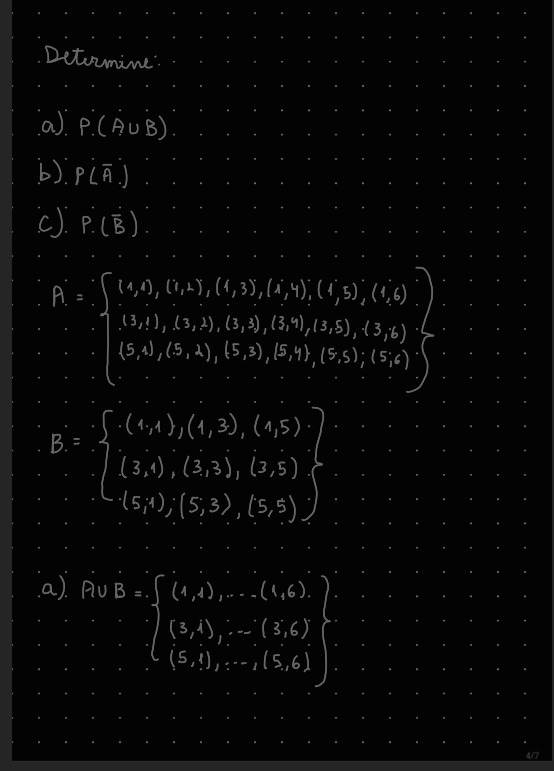 Determine:
a) P(A∪B)
b) P(Ā)
c) P(B̄)
A = { (1,1), (1,2), (1,3), (1,4), (1,5), (1,6)
(3,1), (3,2), (3,3), (3,4), (3,5), (3,6)
(5,1), (5,2), (5,3), (5,4), (5,5), (5,6) }
B = { (1,1), (1,3), (1,5)
(3,1), (3,3), (3,5)
(5,1), (5,3), (5,5) }
a) A∪B = { (1,1), ... (1,6)
(3,1), ... (3,6)
(5,1), ..., (5,6) }
4/7